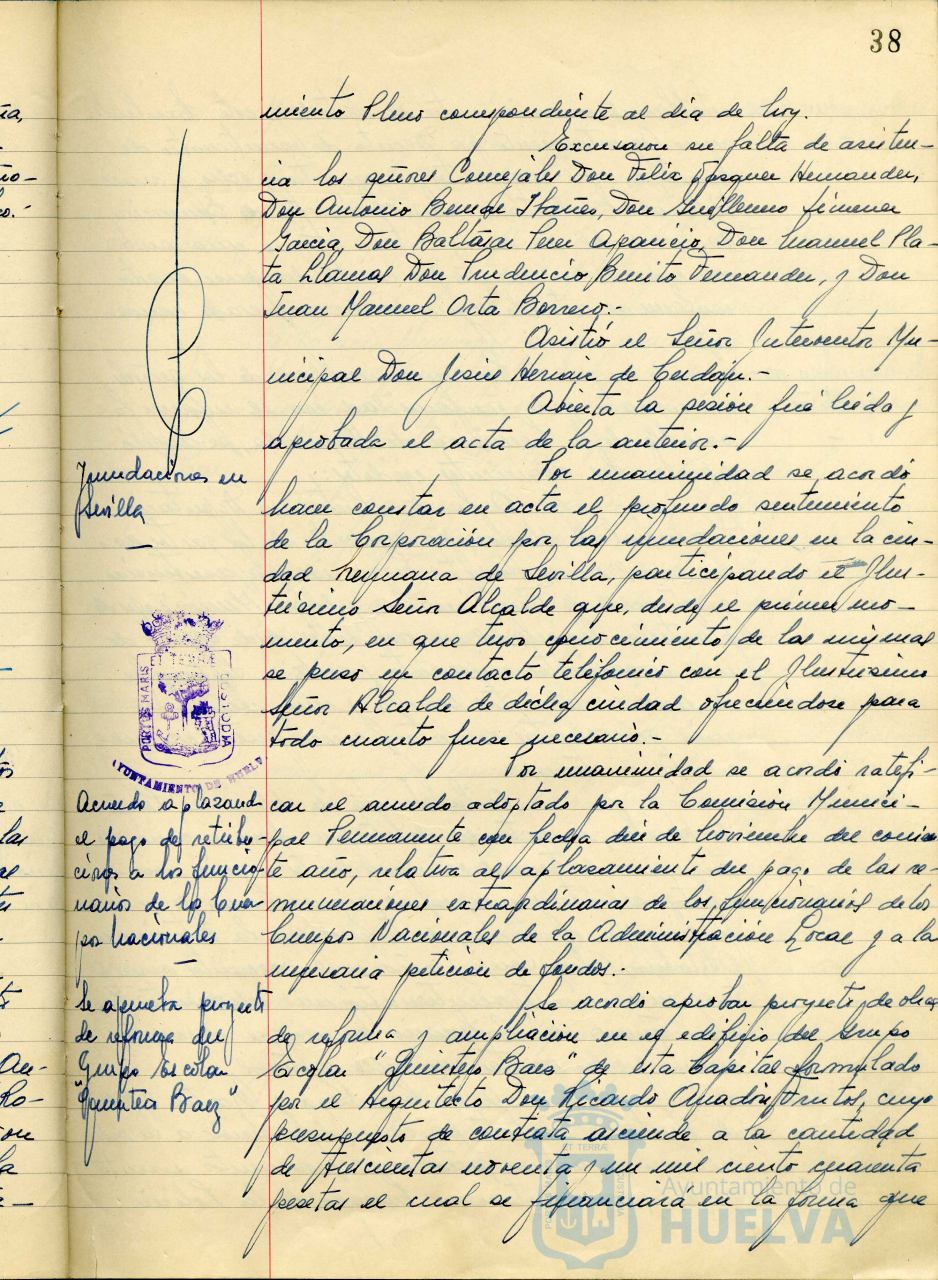 38
miento Pleno correspondiente al dia de hoy.
Excusaron su falta de asisten-
cia los señores Concejales Don Felix Hernandez,
Don Antonio Ibañes, Don Guillermo Jimenez
Garcia, Don Baltasar Perez Aparicio, Don Manuel Pla-
ta Llamas Don Prudencio Benito Fernandez, y Don
Juan Manuel Orta Borrero.-
Asistió el Señor Interventor Mu-
nicipal Don Jesus Hernán de Cerdán.-
Abierta la sesión fué leida y
aprobada el acta de la anterior.-
Inundaciones en
Sevilla
Por unanimidad se acordó
hacer constar en acta el profundo sentimiento
de la Corporación por las inundaciones en la ciu-
dad hermana de Sevilla, participando el Ilus-
trísimo Señor Alcalde que, desde el primer mo-
mento, en que tuvo conocimiento de las mismas
se puso en contacto telefonico con el Ilustrisimo
Señor Alcalde de dicha ciudad ofreciendose para
todo cuanto fuese necesario.-
PORTUS MARIS ET TERRAE CUSTODIA
AYUNTAMIENTO DE HUELVA
Acuerdo aplazando
el pago de retribu-
ciones a los funcio-
narios de los Cuer-
pos Nacionales
Por unanimidad se acordó ratifi-
car el acuerdo adoptado por la Comisión Munici-
pal Permanente con fecha diez de Noviembre del corrien-
te año, relativa al aplazamiento del pago de las re-
muneraciones extraordinarias de los funcionarios de los
Cuerpos Nacionales de la Administración Local y a la
necesaria petición de fondos.-
Se aprueba proyecto
de reforma del
Grupo Escolar
"Quintero Baez"
Se acordó aprobar proyecto de obras
de reforma y ampliación en el edificio del Grupo
Escolar "Quintero Baez" de esta Capital formulado
por el Arquitecto Don Ricardo Anadón Frutos, cuyo
presupuesto de contrata asciende a la cantidad
de trescientas noventa y un mil ciento cuarenta
pesetas el cual se financiará en la forma que
Ayuntamiento de
HUELVA